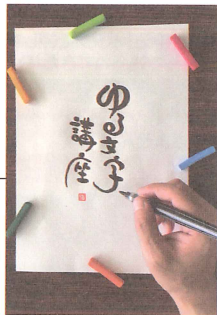 ゆる文字
講座